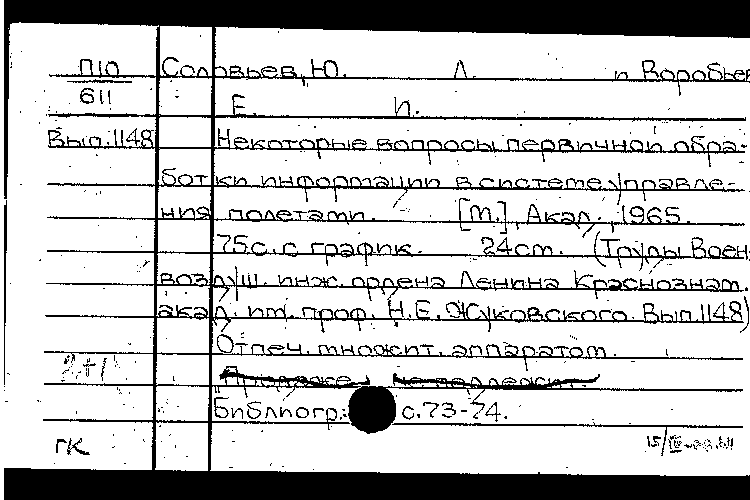 П10 Соловьев, Ю. Л. и Воробьев
611 Е. И.
Вып. 1148 Некоторые вопросы первичной обра-
ботки информации в системе управле-
ния полетами. [М.], Акад., 1965.
75 с. с график. 24 см. (Труды Воен.
воздуш. инж. ордена Ленина Краснознам.
акад. им. проф. Н.Е. Жуковского. Вып. 1148)
Отпеч. множит. аппаратом.
2+1 Продаже не подлежит.
Библиогр.: с. 73-74.
ГК